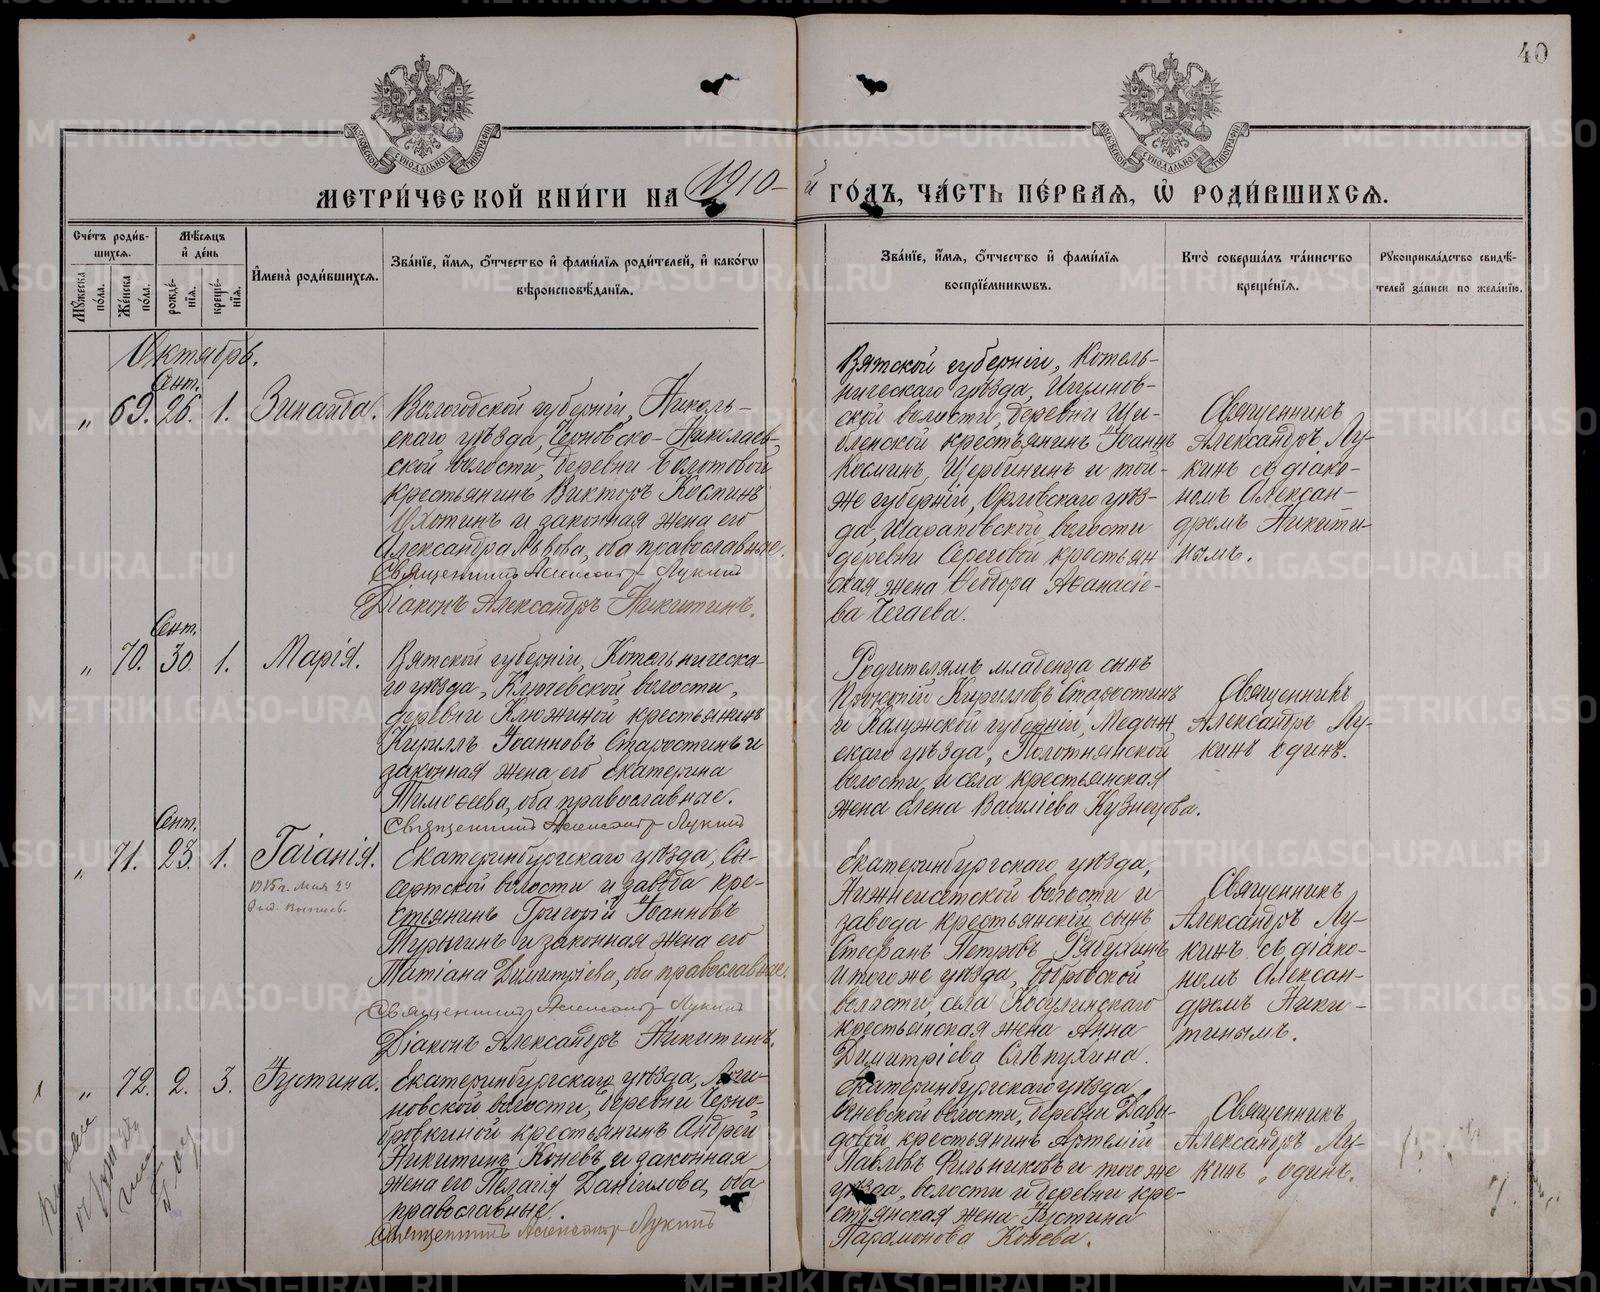 40
МЕТРИ́ЧЕСКОЙ КНИ́ГИ НА 1910-й ГО́ДЪ, ЧА́СТЬ ПЕ́РВАѦ, Ѡ҆ РОДИ́ВШИХСѦ.
Сче́тъ роди́в-
шихсѧ.
Мꙋ́жеска по́ла.
Же́нска по́ла.
Мѣ́сѧцъ и҆ де́нь
рожде́-нїѧ.
креще́-нїѧ.
И҆мена̀ роди́вшихсѧ.
Зва́нїе, и҆́мѧ, ѻ҆́тчество и҆ фами́лїѧ роди́телей, и҆ како́гѡ
вѣроисповѣ́данїѧ.
Зва́нїе, и҆́мѧ, ѻ҆́тчество и҆ фами́лїѧ
воспрїе́мниковъ.
Кто̀ соверша́лъ та́инство
креще́нїѧ.
Рꙋкоприкла́дство свидѣ́-
телей за́писи по жела́нїю.
Октябрь.
Сент.
„ 69. 26. 1. Зинаида.
Вологодской губернiи, Николь-
скаго уѣзда, Черновско-Николаев-
ской волости, деревни Болотовой
крестьянинъ Викторъ Косминъ
Охотинъ и законная жена его
Александра Львова, оба православные.
Священникъ Александръ Лукинъ
Дiаконъ Александръ Никитинъ.
Вятской губернiи, Котель-
ническаго уѣзда,
ской волости, деревни
крестьянинъ Iоаннъ
Косминъ Щербининъ и той-
же губернiи, Орловскаго уѣз-
да, Шараповской волости
деревни Сереговой крестьян
ская жена Ѳеодора Аѳанасiе-
ва Чегаева.
Священникъ
Александръ Лу-
кинъ съ дiако-
номъ Алексан-
дромъ Никити-
нымъ.
Сент.
„ 70. 30. 1. Марiя.
Вятской губернiи, Котельническа-
го уѣзда, Ключевской волости,
деревни Клюжиной крестьянинъ
Кириллъ Iоанновъ Старостинъ и
законная жена его Екатерина
Тимоѳеева, оба православные.
Священникъ Александръ Лукинъ
Родителямъ младенца сынъ
Прокопiй Кирилловъ Старостинъ
и Калужской губернiи, Медын-
скаго уѣзда, Полотнянской
волости и села крестьянская
жена Елена Василiева Кузнецова.
Священникъ
Александръ Лу-
кинъ одинъ.
Сент.
„ 71. 23. 1. Гаiанiя.
1915 г. Мая 24
Екатеринбургскаго уѣзда, Сы-
сертской волости и завода кре-
стьянинъ Григорiй Iоанновъ
Турыгинъ и законная жена его
Татiана Димитрiева, оба православные.
Священникъ Александръ Лукинъ
Дiаконъ Александръ Никитинъ.
Екатеринбургскаго уѣзда,
Нижнеисетской волости и
завода крестьянскiй сынъ
Стефанъ Петровъ Рябухинъ
и того же уѣзда, Бобровской
волости, села Косулинскаго
крестьянская жена Анна
Димитрiева Слѣпухина.
Священникъ
Александръ Лу-
кинъ съ дiако-
номъ Алексан-
дромъ Ники-
тинымъ.
„ 72. 2. 3. Iустина.
Екатеринбургскаго уѣзда, Логи-
новской волости, деревни Черно-
бровкиной крестьянинъ Андрей
Никитинъ Коневъ и законная
жена его Пелагiя Данiилова, оба
православные.
Священникъ Александръ Лукинъ
Екатеринбургскаго уѣзда
волости, деревни Давы-
довой, крестьянинъ Артемiй
Павловъ и того же
уѣзда, волости и деревни кре-
стьянская жена Iустина
Парамонова Конева.
Священникъ
Александръ Лу-
кинъ, одинъ.
METRIKI.GASO-URAL.RU